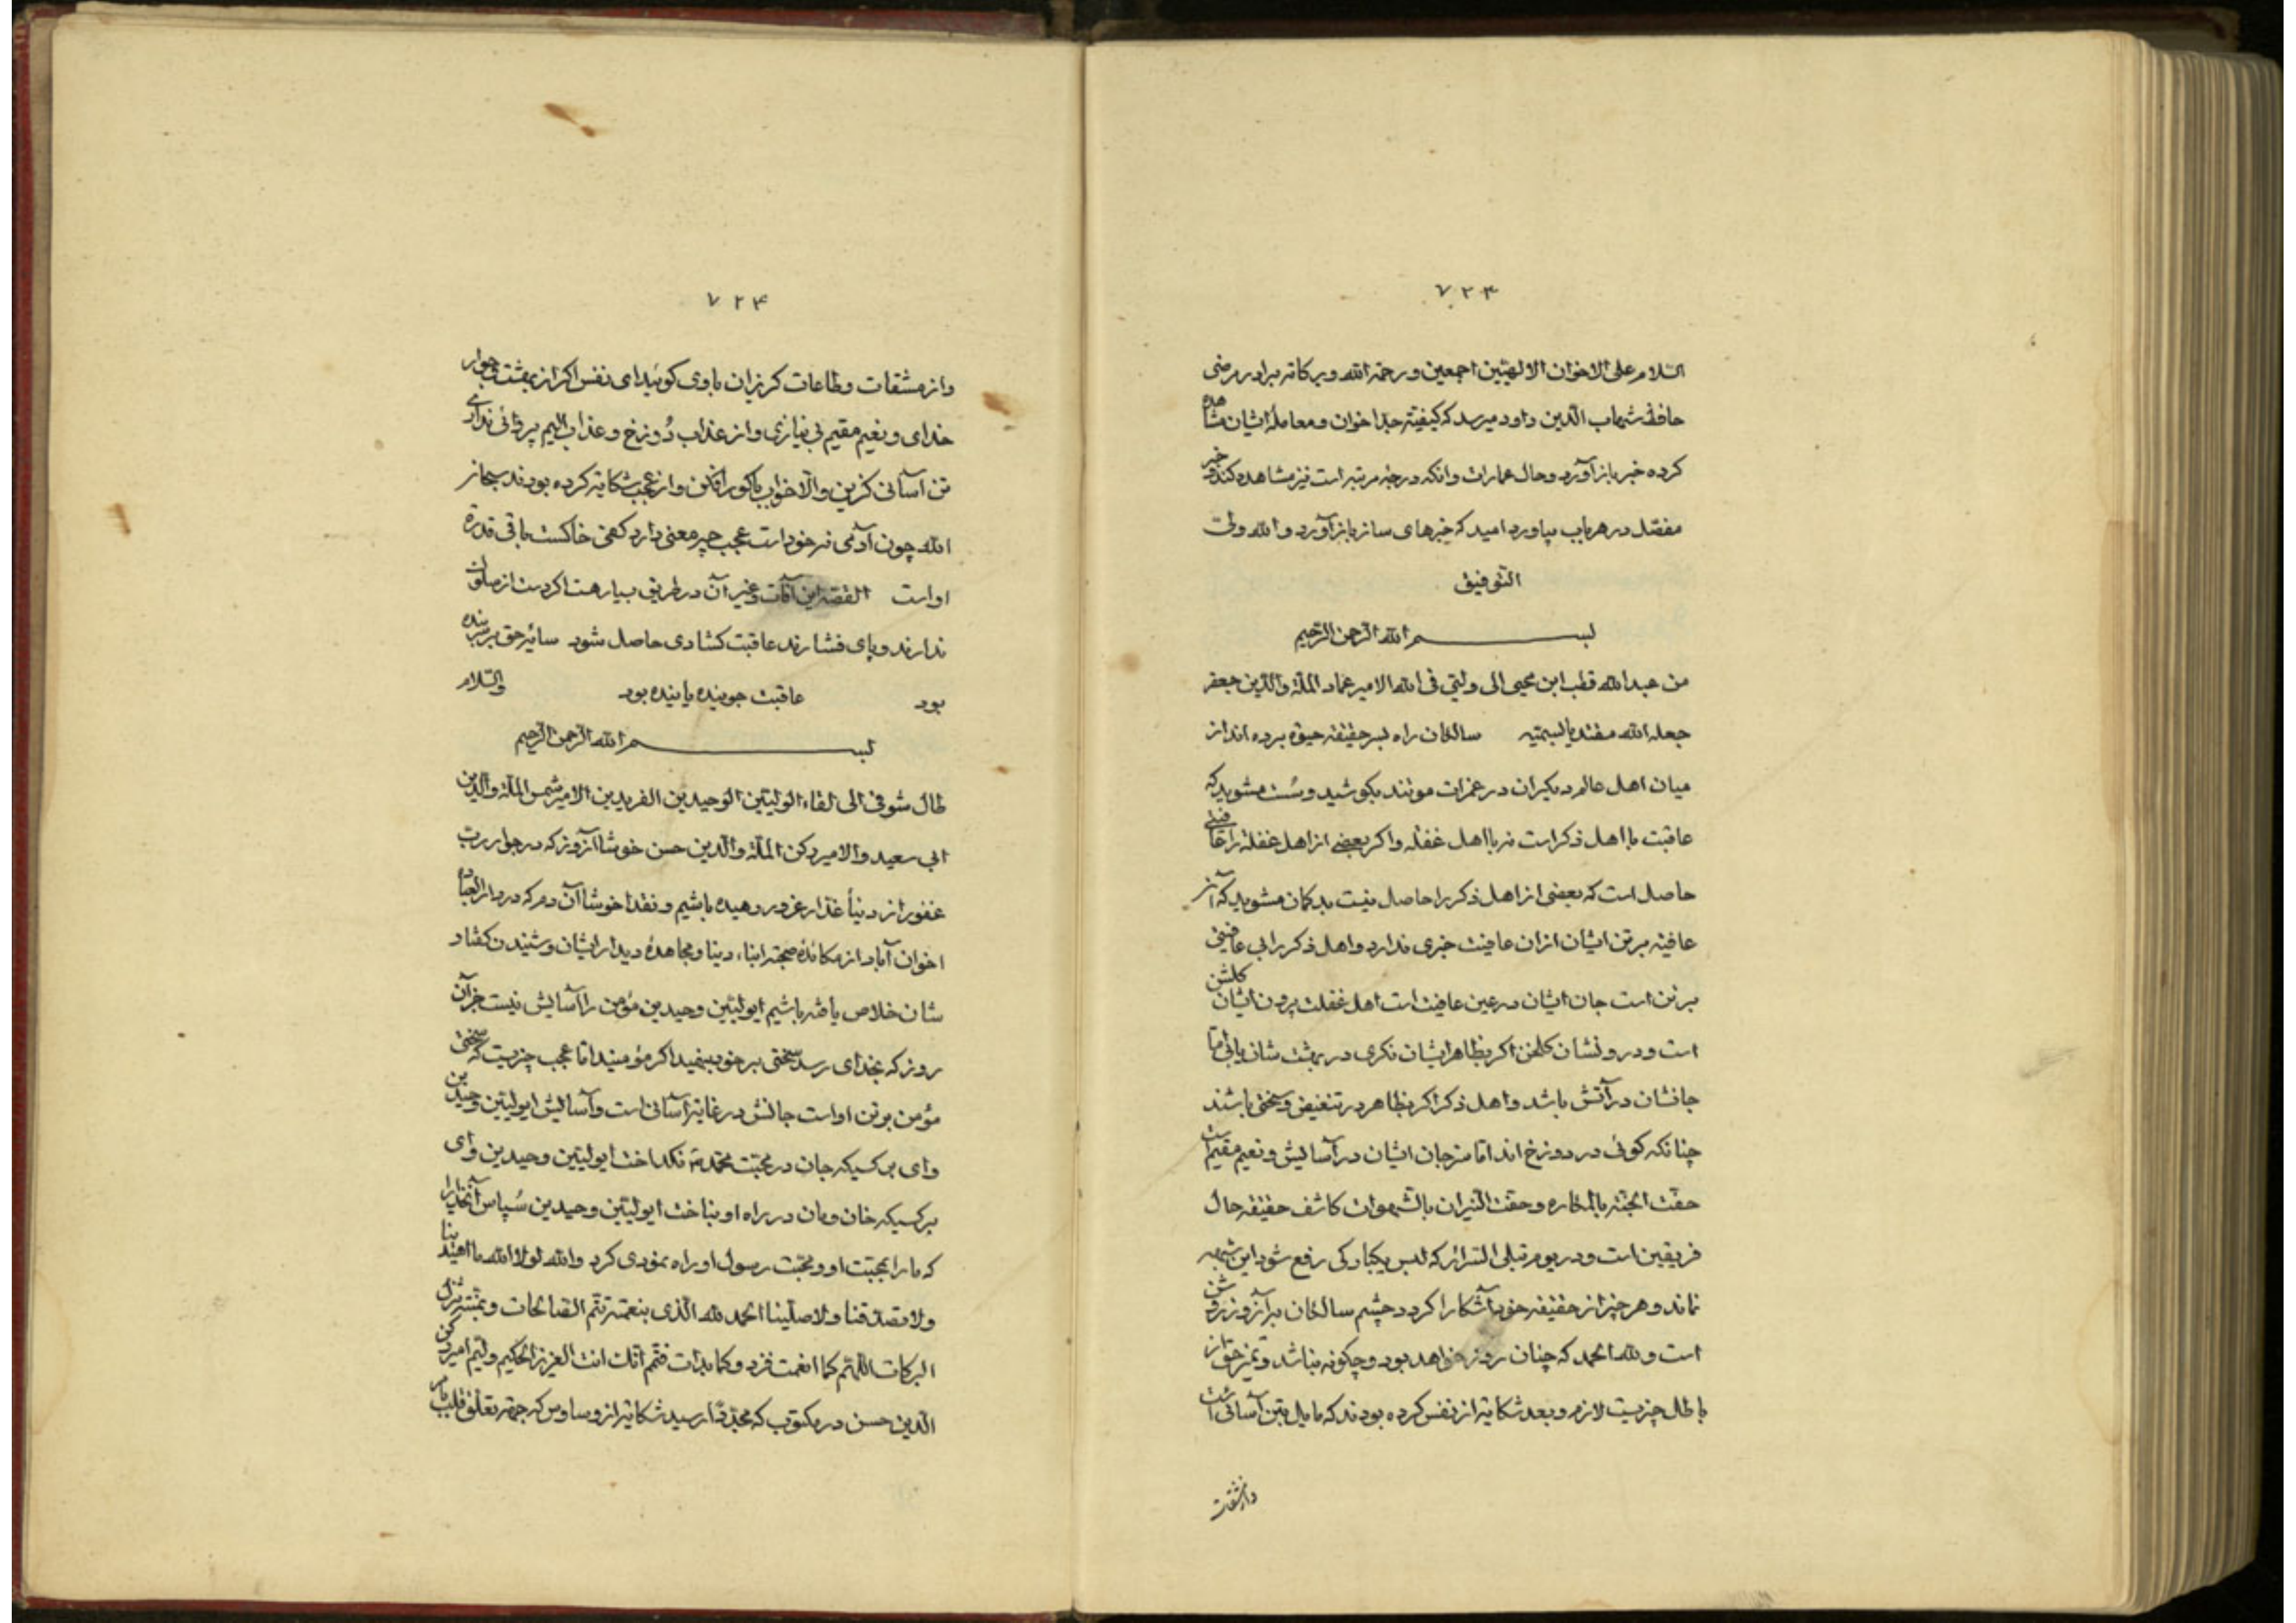 ۷۲۳
السّلام علی الاخوان الالهیّین اجمعین و رحمة الله و برکاته برادر مرضی
حافظ شهاب الدّین داود میرسد که کیفیّة جدا خوان و معاملهٔ ایشان مشاهده
کرده خبر باز آورد و حال عمارات و انکه در چه مرتبه است نیز مشاهده کند و خبر
مفصّل در هر باب بیاورد امید که خبرهای ساز باز آورد و الله ولیّ
التّوفیق
بسم الله الرّحمن الرّحیم
من عبدالله قطب ابن محیی الی ولیّی فی الله الامیر عماد الملّة والدّین جعفر
جعله الله مقتدیا لسمیّه سالکان راه بسر حقیقه حیوة برده اند از
میان اهل عالم دیکران در غمرات موتند بکوشید و سُست مشوید که
عاقبت با اهل ذکر است نه با اهل غفله و اکر بعضی از اهل غفلة را عافیتی
حاصل است که بعضی از اهل ذکر را حاصل نیست بد کمان مشوید که آنر
عافیة بر تن ایشان ازان عافیت خبری ندارد و اهل ذکر را بی عافیتی
بر تن است جان ایشان در عین عافیت است اهل غفلت برون ایشان کلشن
است و درونشان کلخن اکر بظاهر ایشان نکری در بهشت شان یابی امّا
جانشان در آتش باشد و اهل ذکر اکر بظاهر در تنغیص و سختی باشند
چنانکه کوئی در دوزخ اند امّا سرجان ایشان در آسایش و نعیم مقیم است
حفّت الجنّة بالمکاره و حفّت النّیران بالشّهوات کاشف حقیقه حال
فریقین است و در یوم تبلی السّرائر که لبس یکبارکی رفع شود این شبهه
نماند و هر چیز از حقیقه خود آشکارا کردد چشم سالکان برآنروز روشن
است و لله الحمد که چنان روز خواهد بود و چکونه نباشد و تمیز حق از
باطل چزیست لازم و بعد شکایة از نفس کرده بودند که مایل بتن آسانی است
وازمشقات
۷۲۴
و از مشقات و طاعات کریزان با وی کوئید ای نفس اکر از بهشت و جوار
خدای و نعیم مقیم بی نیازی و از عذاب دُوزخ و عذاب الیم پروائی نداری
تن آسانی کزین و الّا خواب با کور افکن و از عجب شکایة کرده بودند سبحان
الله چون آدمی نه خود است عجب چه معنی دارد کفی خاکست باقی قدرة
او است القصّه این آفات و غیر آن در طریق بسیار هست اکر دست از سلوک
ندارند و پای فشارند عاقبت کشادی حاصل شود سایهٔ حق بر سر بنده
بود عاقبت جوینده یابنده بود والسّلام
بسم الله الرّحمن الرّحیم
طال شوقی الی لقاء الولیّین الوحیدین الفریدین الامیر شمس الملّة والدّین
ابی سعید و الامیر رکن الملّة والدّین حسن خوشا آنروز که در جوار ربّ
غفور از دنیأ غدّار غرور رهیده باشیم و نقدا خوشا آن دم که در دار العباده
اخوان آباد از مکائدهٔ صحبة ابناء دینا و مجاهدهٔ دیدار ایشان و شنیدن کفتار
شان خلاص یافته باشیم ایولیّین وحیدین مؤمن را آسایش نیست جز آن
روز که بخدای رسد سختی بر خود ببینید اکر مؤمنید امّا عجب چزیست که سختی
مؤمن بر تن او است جانش در غایة آسانی است و آسایش ایولیّین وحیدین
وای بر کسیکه جان در محبّت محمّد نکداخت ایولیّین وحیدین وای
بر کسیکه خان و مان در راه او نباخت ایولیّین وحیدین سُپاس آنخدایرا
که ما را بمحبّت او و محبّت رسول او راه نمودی کرد والله لولا الله ما اهتدینا
ولا تصدّقنا ولا صلّینا الحمد لله الّذی بنعمته تتم الصّالحات و بمنّته تنزل
البرکات اللّهم کما انعمت فزد و کما بدات فتمّم انّک انت العزیز الحکیم ولیّم امیر رکن
الدّین حسن در مکتوب که مجدّدا رسید شکایة از وساوس که جهة تعلّق قلب بامر